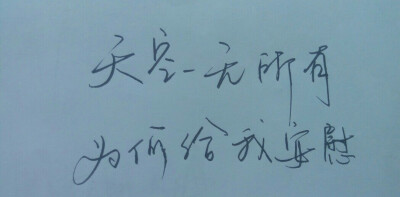 天空一无所有
为何给我安慰